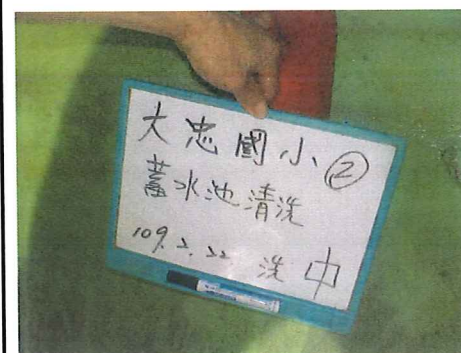 大忠國小②
蓄水池清洗
109.2.22 洗中